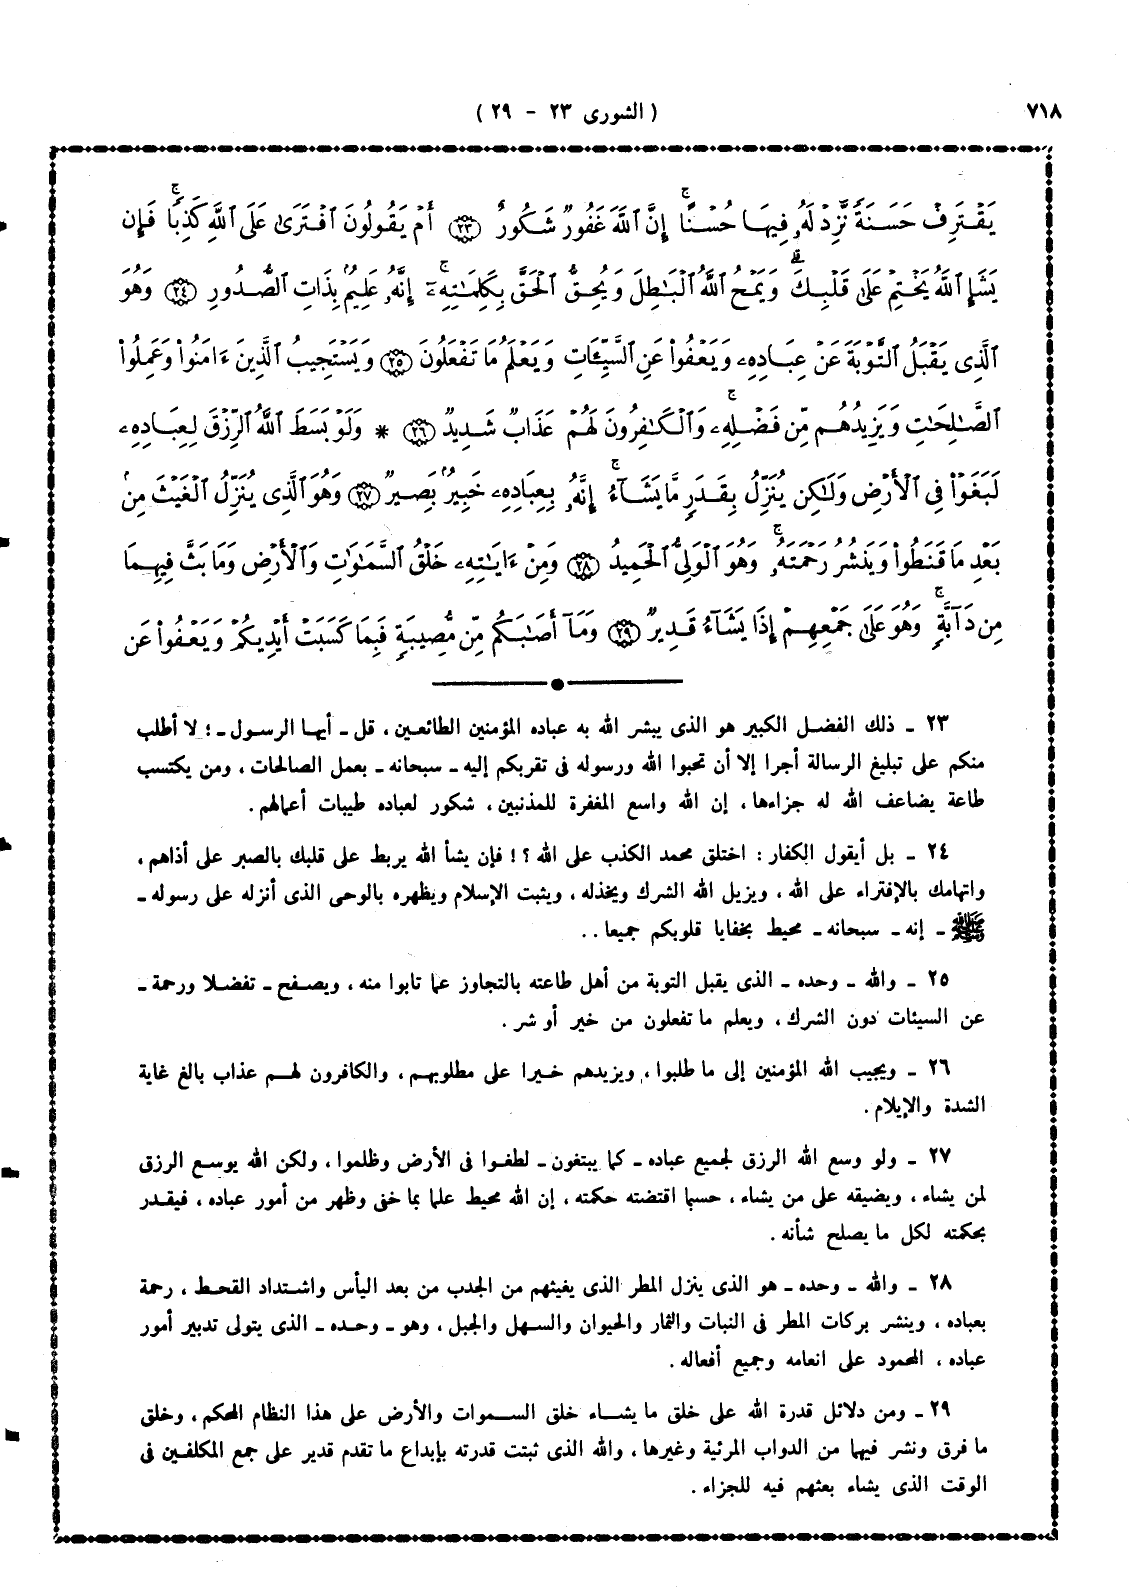 ٧١٨
( الشورى ٢٣ - ٢٩ )
يَقْتَرِفْ حَسَنَةً نَّزِدْ لَهُۥ فِيهَا حُسْنًاۚ إِنَّ ٱللَّهَ غَفُورٌ شَكُورٌ ﴿٢٣﴾ أَمْ يَقُولُونَ ٱفْتَرَىٰ عَلَى ٱللَّهِ كَذِبًاۚ فَإِن
يَشَإِ ٱللَّهُ يَخْتِمْ عَلَىٰ قَلْبِكَۗ وَيَمْحُ ٱللَّهُ ٱلْبَٰطِلَ وَيُحِقُّ ٱلْحَقَّ بِكَلِمَٰتِهِۦٓۚ إِنَّهُۥ عَلِيمُۢ بِذَاتِ ٱلصُّدُورِ ﴿٢٤﴾ وَهُوَ
ٱلَّذِى يَقْبَلُ ٱلتَّوْبَةَ عَنْ عِبَادِهِۦ وَيَعْفُوا۟ عَنِ ٱلسَّيِّـَٔاتِ وَيَعْلَمُ مَا تَفْعَلُونَ ﴿٢٥﴾ وَيَسْتَجِيبُ ٱلَّذِينَ ءَامَنُوا۟ وَعَمِلُوا۟
ٱلصَّٰلِحَٰتِ وَيَزِيدُهُم مِّن فَضْلِهِۦۚ وَٱلْكَٰفِرُونَ لَهُمْ عَذَابٌ شَدِيدٌ ﴿٢٦﴾ * وَلَوْ بَسَطَ ٱللَّهُ ٱلرِّزْقَ لِعِبَادِهِۦ
لَبَغَوْا۟ فِى ٱلْأَرْضِ وَلَٰكِن يُنَزِّلُ بِقَدَرٍ مَّا يَشَآءُۚ إِنَّهُۥ بِعِبَادِهِۦ خَبِيرُۢ بَصِيرٌ ﴿٢٧﴾ وَهُوَ ٱلَّذِى يُنَزِّلُ ٱلْغَيْثَ مِنۢ
بَعْدِ مَا قَنَطُوا۟ وَيَنشُرُ رَحْمَتَهُۥۚ وَهُوَ ٱلْوَلِىُّ ٱلْحَمِيدُ ﴿٢٨﴾ وَمِنْ ءَايَٰتِهِۦ خَلْقُ ٱلسَّمَٰوَٰتِ وَٱلْأَرْضِ وَمَا بَثَّ فِيهِمَا
مِن دَآبَّةٍۚ وَهُوَ عَلَىٰ جَمْعِهِمْ إِذَا يَشَآءُ قَدِيرٌ ﴿٢٩﴾ وَمَآ أَصَٰبَكُم مِّن مُّصِيبَةٍ فَبِمَا كَسَبَتْ أَيْدِيكُمْ وَيَعْفُوا۟ عَن
٢٣ - ذلك الفضل الكبير هو الذى يبشر الله به عباده المؤمنين الطائعين ، قل - أيها الرسول - : لا أطلب
منكم على تبليغ الرسالة أجرا إلا أن تحبوا الله ورسوله فى تقربكم إليه - سبحانه - بعمل الصالحات ، ومن يكتسب
طاعة يضاعف الله له جزاءها ، إن الله واسع المغفرة للمذنبين ، شكور لعباده طيبات أعمالهم .
٢٤ - بل أيقول الكفار : اختلق محمد الكذب على الله ؟ ! فإن يشأ الله يربط على قلبك بالصبر على أذاهم ،
واتهامك بالإفتراء على الله ، ويزيل الله الشرك ويخذله ، ويثبت الإسلام ويظهره بالوحى الذى أنزله على رسوله -
ﷺ - إنه - سبحانه - محيط بخفايا قلوبكم جميعا . .
٢٥ - والله - وحده - الذى يقبل التوبة من أهل طاعته بالتجاوز عما تابوا منه ، ويصفح - تفضلا ورحمة -
عن السيئات دون الشرك ، ويعلم ما تفعلون من خير أو شر .
٢٦ - ويجيب الله المؤمنين إلى ما طلبوا ، ويزيدهم خيرا على مطلوبهم ، والكافرون لهم عذاب بالغ غاية
الشدة والإيلام .
٢٧ - ولو وسع الله الرزق لجميع عباده - كما يبتغون - لطغوا فى الأرض وظلموا ، ولكن الله يوسع الرزق
لمن يشاء ، ويضيقه على من يشاء ، حسبما اقتضته حكمته ، إن الله محيط علما بما خفى وظهر من أمور عباده ، فيقدر
بحكمته لكل ما يصلح شأنه .
٢٨ - والله - وحده - هو الذى ينزل المطر الذى يغيثهم من الجدب من بعد اليأس واشتداد القحط ، رحمة
بعباده ، وينشر بركات المطر فى النبات والثمار والحيوان والسهل والجبل ، وهو - وحده - الذى يتولى تدبير أمور
عباده ، المحمود على انعامه وجميع أفعاله .
٢٩ - ومن دلائل قدرة الله على خلق ما يشاء خلق السموات والأرض على هذا النظام المحكم ، وخلق
ما فرق ونشر فيهما من الدواب المرئية وغيرها ، والله الذى ثبتت قدرته بإبداع ما تقدم قدير على جمع المكلفين فى
الوقت الذى يشاء بعثهم فيه للجزاء .